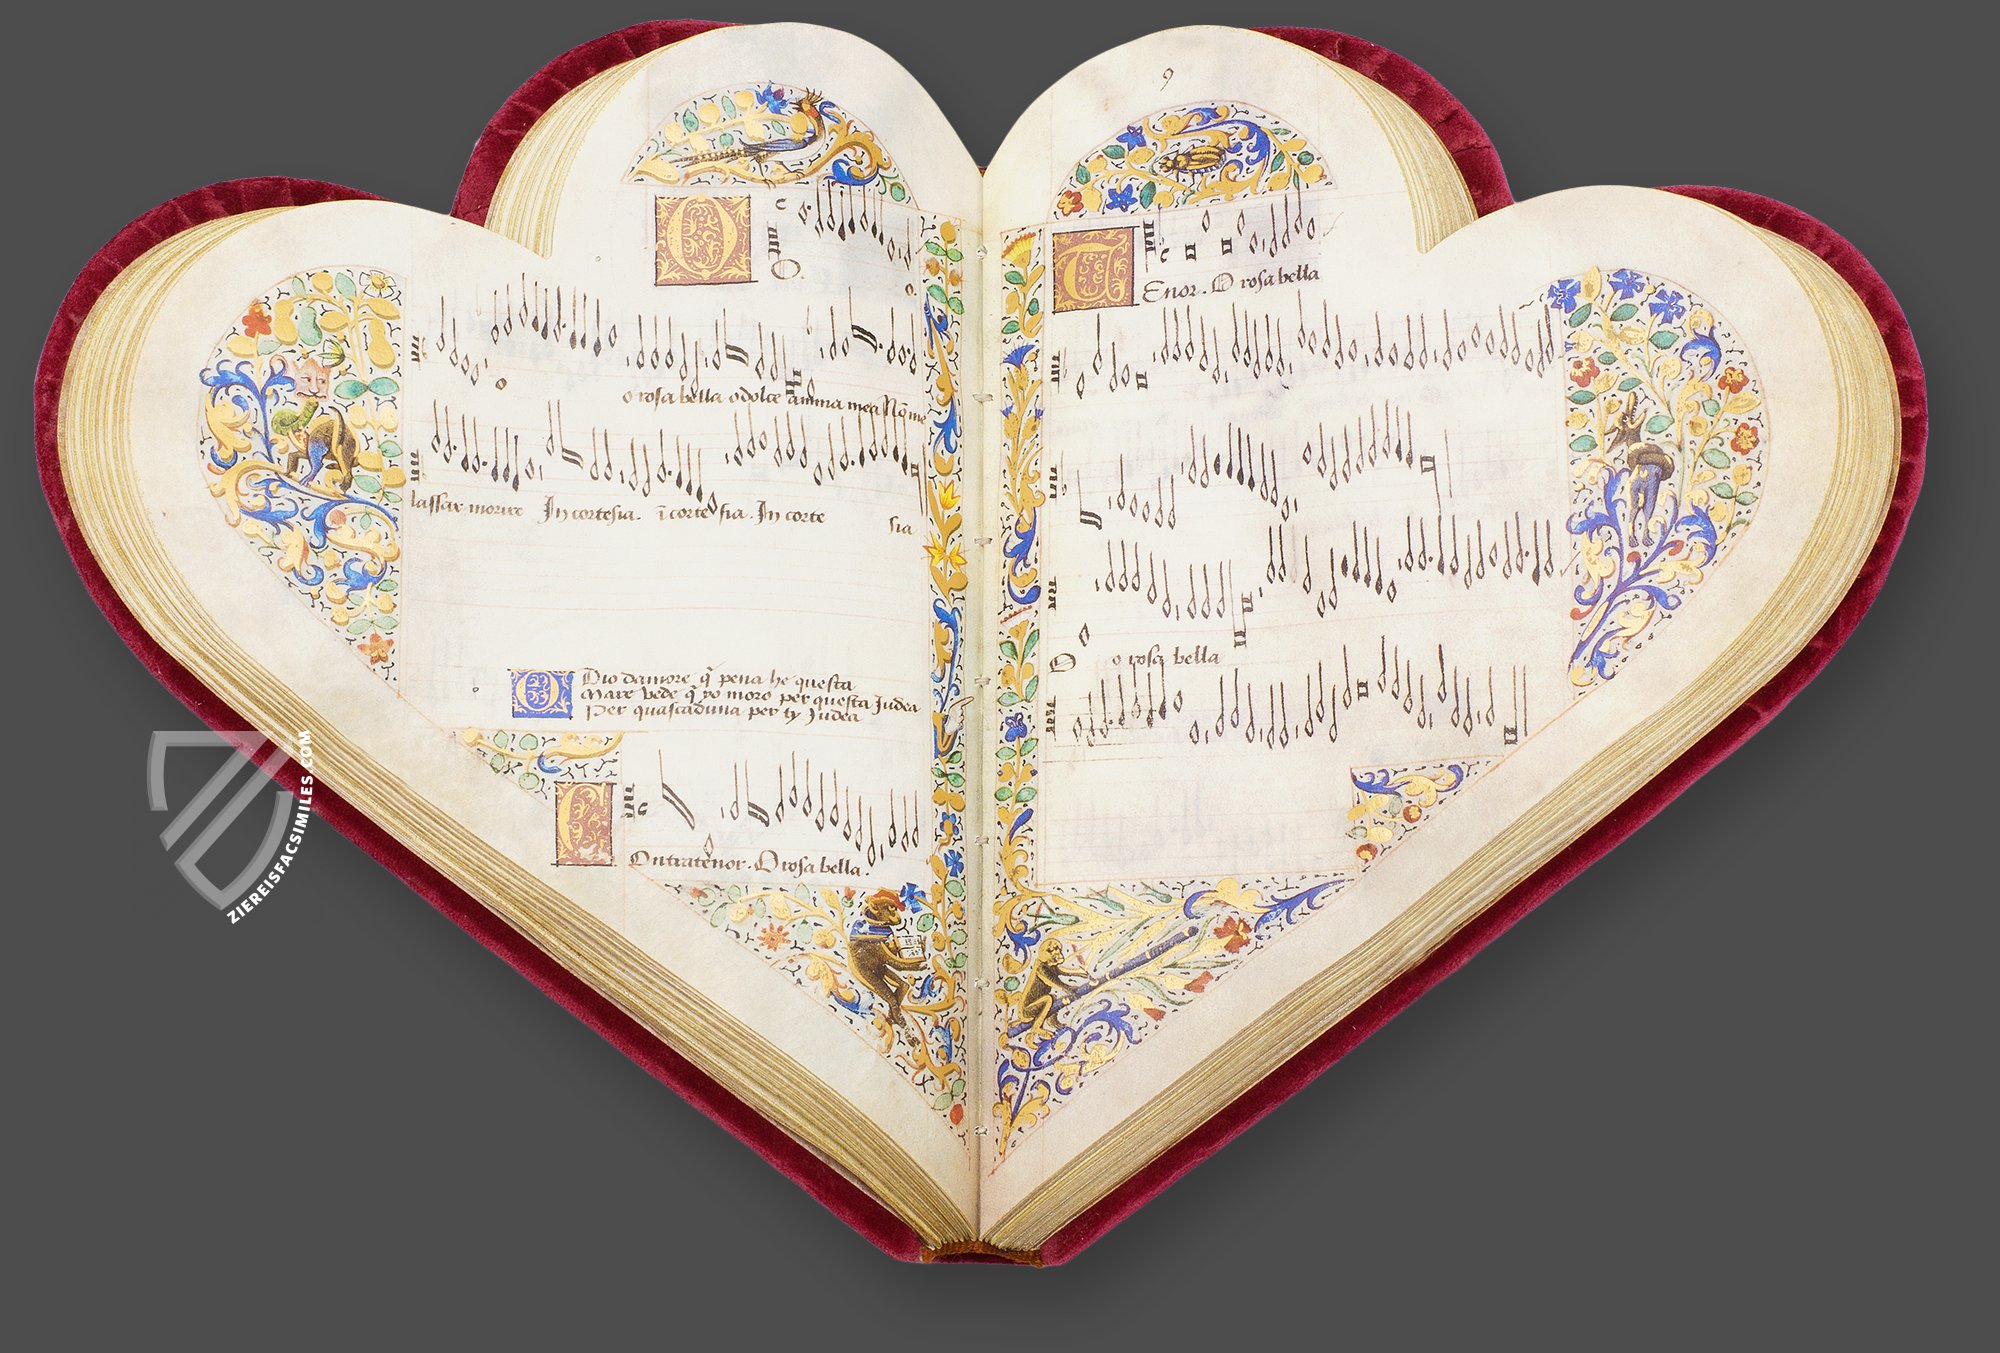 O
o rosa bella o dolce anima mea Nō me
lassar morire In cortesia. ī cortesia. In corte sia
Dio damore q̄ pena he questa
Mare vede q̄ yo moro per questa Judea
Per quascaduna per ty Judea
Contratenor. O rosa bella.
9
Tenor. O rosa bella
O o rosa bella
ZIEREISFACSIMILES.COM